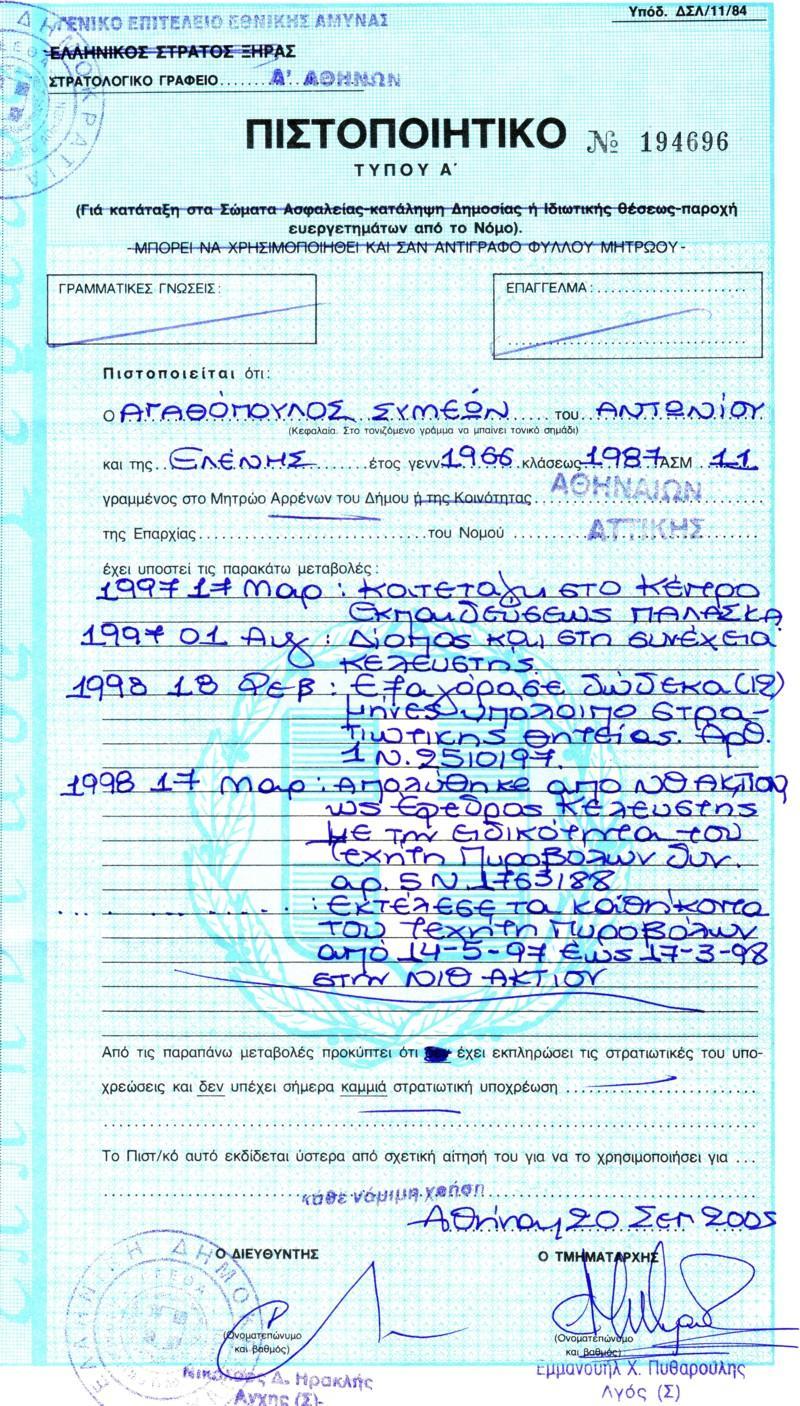 Υπόδ. ΔΣΛ/11/84
ΓΕΝΙΚΟ ΕΠΙΤΕΛΕΙΟ ΕΘΝΙΚΗΣ ΑΜΥΝΑΣ
ΕΛΛΗΝΙΚΟΣ ΣΤΡΑΤΟΣ ΞΗΡΑΣ
ΣΤΡΑΤΟΛΟΓΙΚΟ ΓΡΑΦΕΙΟ....... Α' ΑΘΗΝΩΝ
ΠΙΣΤΟΠΟΙΗΤΙΚΟ № 194696
ΤΥΠΟΥ Α΄
(Γιά κατάταξη στα Σώματα Ασφαλείας-κατάληψη Δημοσίας ή Ιδιωτικής θέσεως-παροχή
ευεργετημάτων από το Νόμο).
-ΜΠΟΡΕΙ ΝΑ ΧΡΗΣΙΜΟΠΟΙΗΘΕΙ ΚΑΙ ΣΑΝ ΑΝΤΙΓΡΑΦΟ ΦΥΛΛΟΥ ΜΗΤΡΩΟΥ-
ΓΡΑΜΜΑΤΙΚΕΣ ΓΝΩΣΕΙΣ:
ΕΠΑΓΓΕΛΜΑ:
Πιστοποιείται ότι:
ο ΑΓΑΘΟΠΟΥΛΟΣ ΣΥΜΕΩΝ του ΑΝΤΩΝΙΟΥ
(Κεφαλαία. Στο τονιζόμενο γράμμα να μπαίνει τονικό σημάδι)
και της ΕΛΕΝΗΣ έτος γενν. 1966 κλάσεως 1987 ΑΣΜ 11
γραμμένος στο Μητρώο Αρρένων του Δήμου ή της Κοινότητας ΑΘΗΝΑΙΩΝ
της Επαρχίας του Νομού ΑΤΤΙΚΗΣ
έχει υποστεί τις παρακάτω μεταβολές:
1997 17 Μαρ : Κατετάγη στο Κέντρο
Εκπαιδεύσεως ΠΑΛΑΣΚΑ
1997 01 Αυγ : Δίοπος και στη συνέχεια
Κελευστής.
1998 18 Φεβ : Εξαγόρασε δώδεκα (12)
μήνες υπόλοιπο στρα-
τιωτικής θητείας. Αρθ.
1 Ν. 2510/97.
1998 17 Μαρ : Απολύθηκε από ΝΘ ΑΚΤΙΟΥ
ως Έφεδρος Κελευστής
με την ειδικότητα του
Τεχνίτη Πυροβόλων δυν.
αρ. 5 Ν. 1763/88
: Εκτέλεσε τα καθήκοντα
του Τεχνίτη Πυροβόλων
από 14-5-97 έως 17-3-98
στην ΝΘ ΑΚΤΙΟΥ
Από τις παραπάνω μεταβολές προκύπτει ότι έχει εκπληρώσει τις στρατιωτικές του υπο-
χρεώσεις και δεν υπέχει σήμερα καμμιά στρατιωτική υποχρέωση
Το Πιστ/κό αυτό εκδίδεται ύστερα από σχετική αίτησή του για να το χρησιμοποιήσει για ...
κάθε νόμιμη χρήση
Αθήνα, 20 Σεπ 2005
Ο ΔΙΕΥΘΥΝΤΗΣ Ο ΤΜΗΜΑΤΑΡΧΗΣ
(Ονοματεπώνυμο
και βαθμός)
(Ονοματεπώνυμο
και βαθμός)
Νικόλαος Δ. Ηρακλής
Ανχης (Σ)
Εμμανουήλ Χ. Πυθαρούλης
Λγός (Σ)